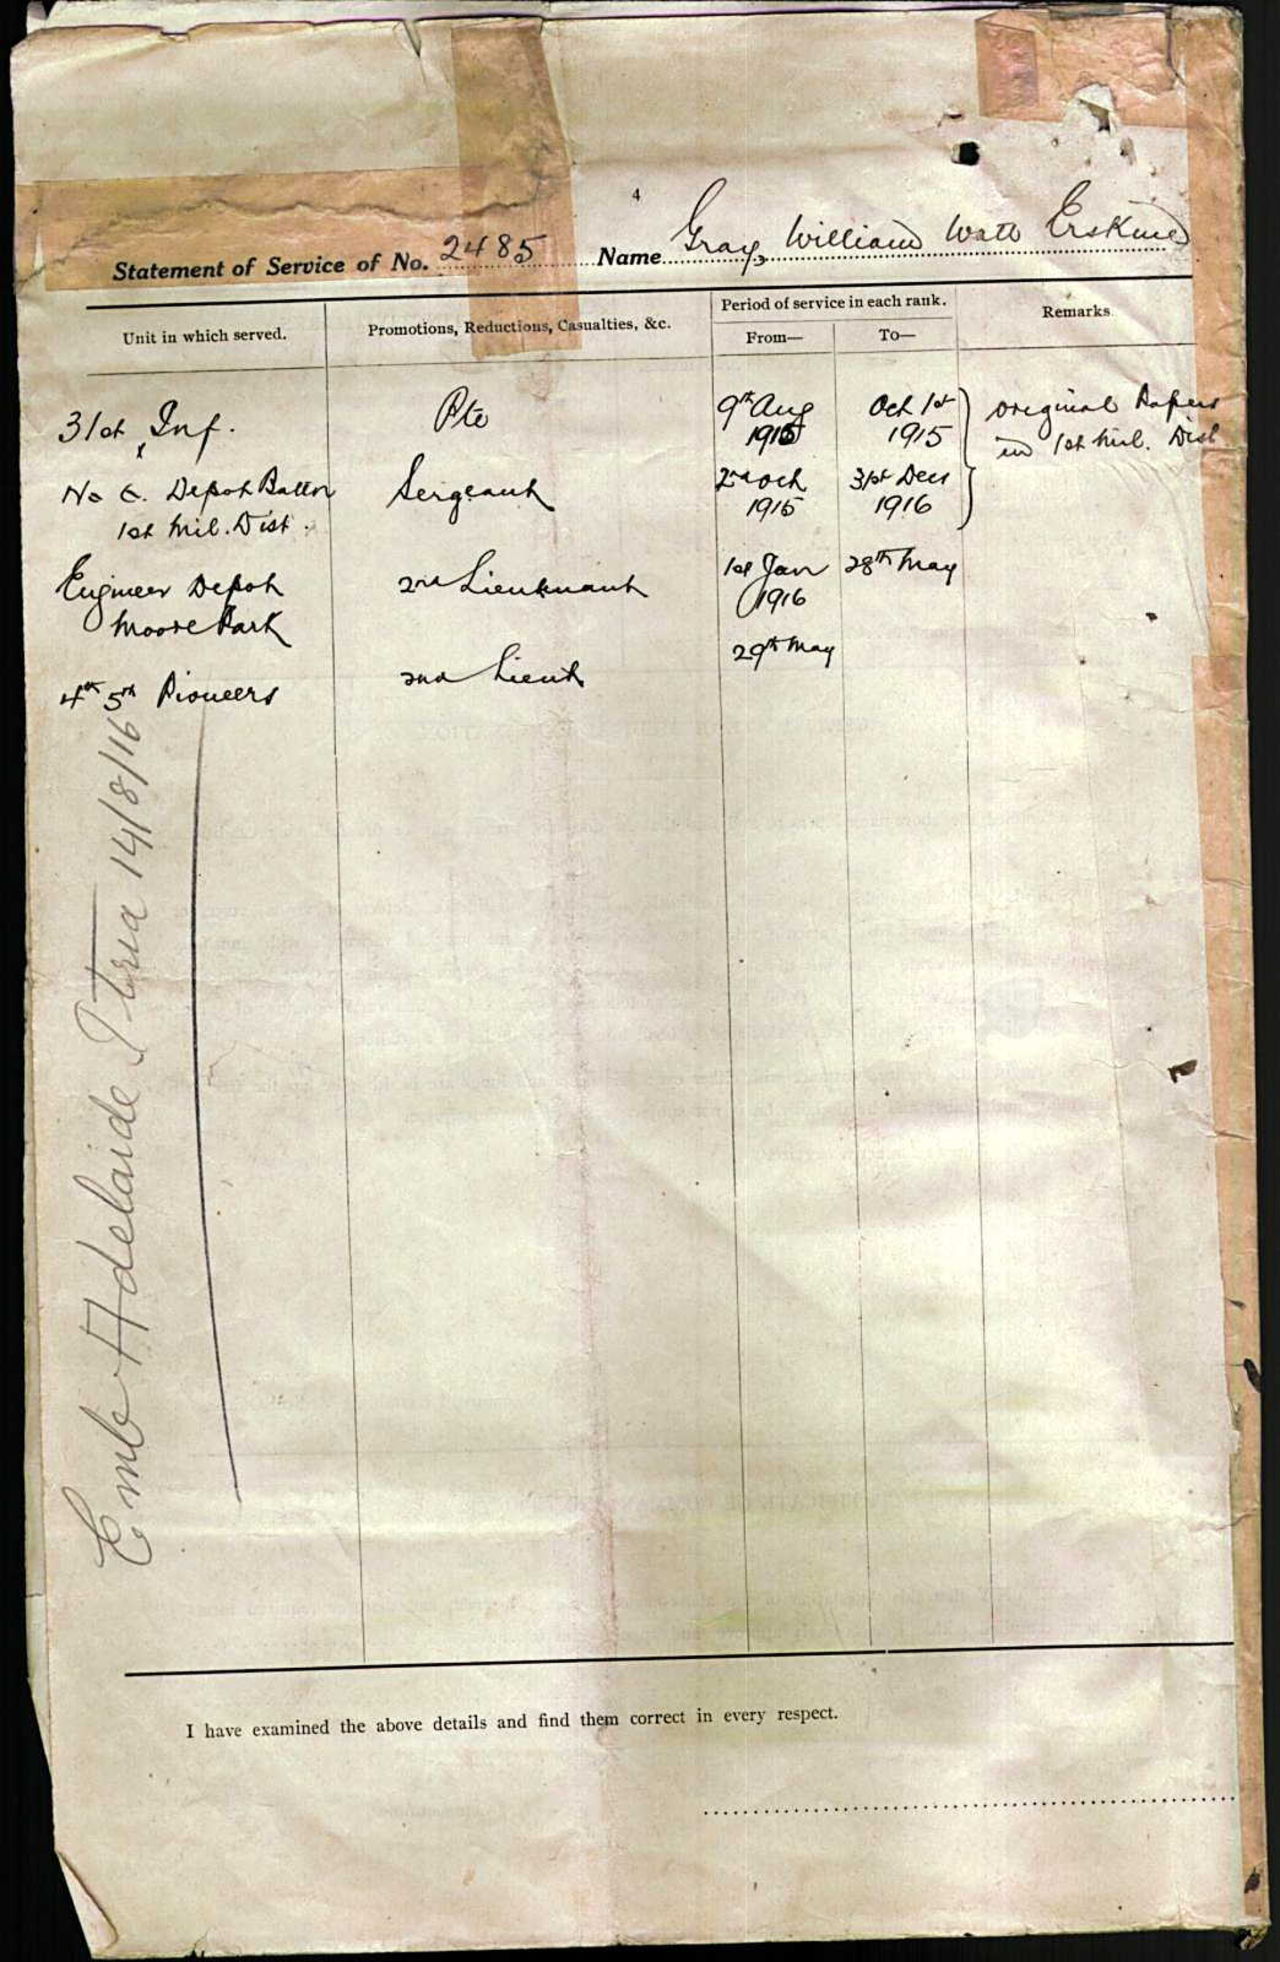 4
Statement of Service of No. 2485 Name Gray, William Watt Erskine
Unit in which served.
Promotions, Reductions, Casualties, &c.
Period of service in each rank.
From—
To—
Remarks.
31st Inf.
Pte
9th Aug
1915
Oct 1st
1915
Original Papers
in 1st Mil. Dist
No 6. Depot Battn
1st Mil. Dist.
Sergeant
2nd Oct
1915
31st Decr
1916
Engineer Depot
Moore Park
2nd Lieutenant
1st Jan
1916
28th May
4th 5th Pioneers
2nd Lieut
29th May
Emb Adelaide Itria 14/8/16
I have examined the above details and find them correct in every respect.